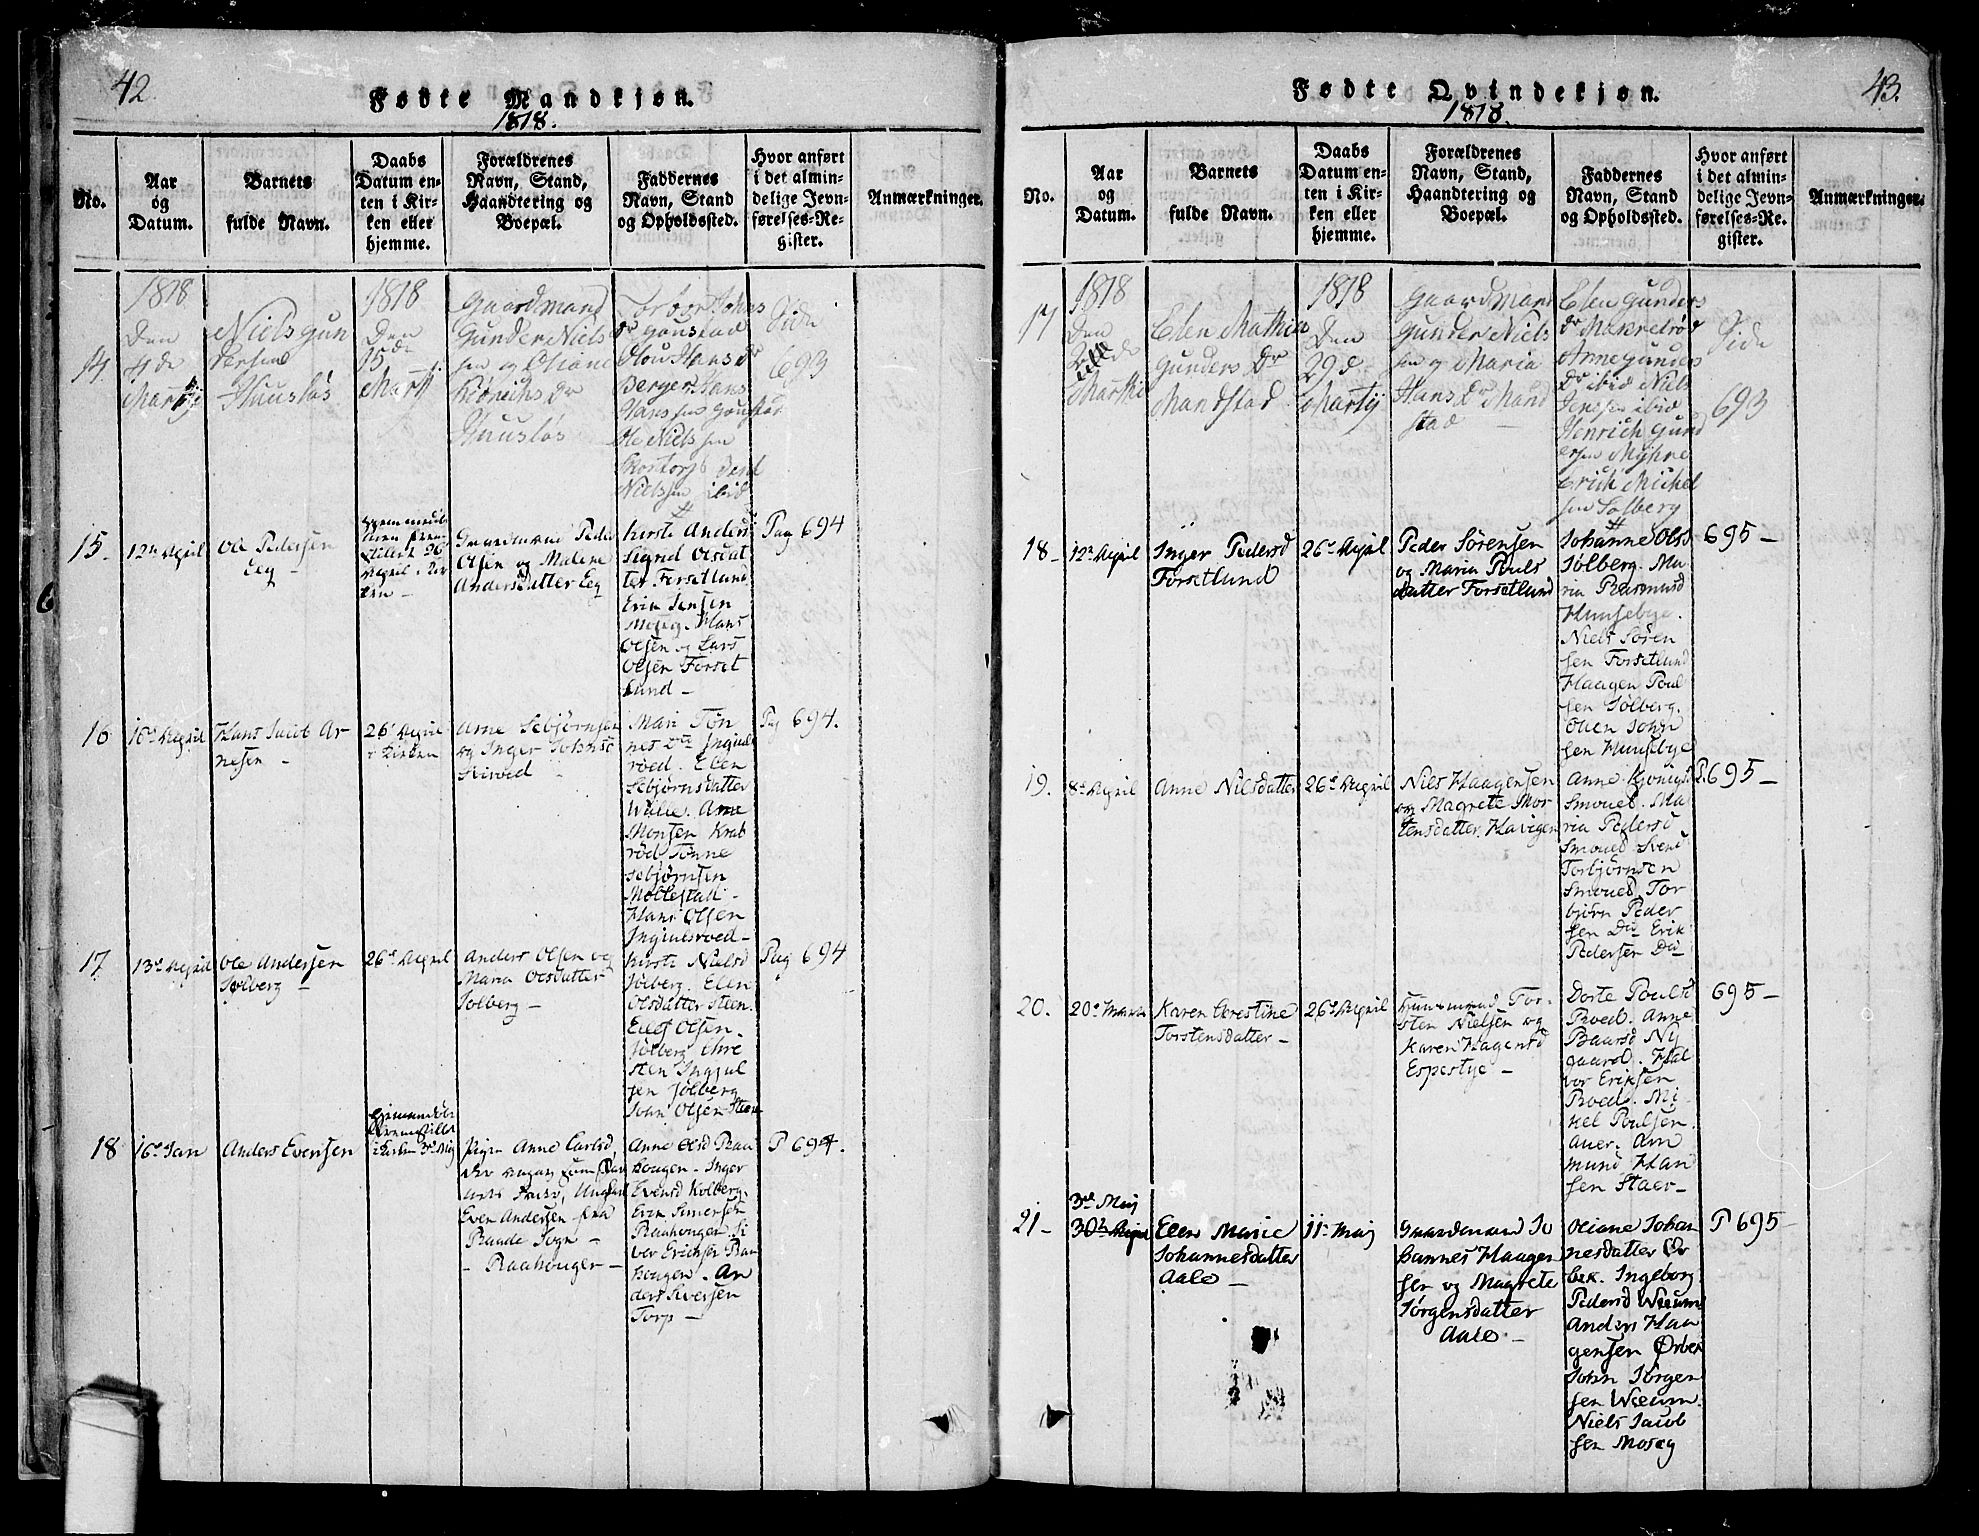 42.
Fødte Mandkjøn.
1818.
No.
Aar
og
Datum.
Barnets
fulde Navn.
Daabs
Datum en-
ten i Kir-
ken eller
hjemme.
Forældrenes
Navn, Stand,
Haandtering og
Boepæl.
Faddernes
Navn, Stand
og Opholdssted.
Hvor anført
i det almin-
delige Jevn-
førelses-Re-
gister.
Anmærkninger.
14.
1818
Den
4de
Martij
Niels Gun
dersen
Huusløs
1818
Den
15de
Martij
Gaardmand
Gunder Niels
sen og
Huusløs
Gaustad
Olou Hans Dr
Berger Hans
Hanssen
Ole Nielssen
Nielssen ibid
Side
693
15.
12te April
Ole Pedersen
Eeg -
26
April i Kir
ken -
Gaardmand Peder
Olsen og Malene
Andersdatter Eeg
Kirsti Anders
Sigrid Olsdat
ter Forsetlund
Erik Jensen
Moseg. Hans
Olsen og Lars
Olsen Forset
lund -
Pag 694
16
16de April
Hans Jacob Ar
nesen -
26 April
i Kirken
Arne Sebjørnsen
og Inger Johnsd
Mari Tøn
nes Dtr Ingiuls
røed. Elen
Sebjørnsdatter
Wiile. Arne
Monsen Krab
rød Tønne
Sebjørnsen
Møllestad.
Hans Olsen
Ingiulsroed -
Pag 694.
17
13de April
Ole Andersen
Solberg -
26de April
Anders Olsen og
Maria Olsdatter
Solberg -
Kirsti Nielsd
Solberg. Elen
Olsdatter Steen.
Olsen
Solberg Chre
sten Ingjul
sen Solberg
Ivar Olsen Steen
Pag 694
18
16de Jan
Anders Evensen
i Kirken 3de Maj
Pigen Anne Carlsd,
Even Andersen fra
Raade Sogn -
- Raahouger -
Anne Olsd Raa
hougen. Inger
Evensd Kolberg.
Erik Simersen
Raahougen. Si
ver Erichsen Raa
hougen. An
ders Siversen
Torp -
P 694.
43.
Fødte Qvindekjøn.
1818.
No.
Aar
og
Datum.
Barnets
fulde Navn.
Daabs
Datum en-
ten i Kir-
ken eller
hjemme.
Forældrenes
Navn, Stand,
Haandtering og
Boepæl.
Faddernes
Navn, Stand
og Opholdssted.
Hvor anført
i det almin-
delige Jevn-
førelses-Re-
gister.
Anmærkninger.
17
1818
Den
Martii
Elen Mathia
Gunders Dr
Mandstad
1818
Den
29de
Martij
Gaardmand
Gunder Niels
sen og Maria
Hans Dr Mand
stad -
Elen Gunders
Dr Makrelrød
Anne Gunders
Dr ibid Niels
Jenssen ibid
Henrich Gund
ersen Myhre
Erich Mickel
sen Solberg
Side
693
18 -
12te April
Inger Pedersd
Forsetlund
26de April
Peder Sørensen
og Maria Pouls
datter Forsetlund
Johanne Olsd
Solberg. Ma
ria Rasmusd
Huusebye.
Niels Søren
sen Forsetlund
Haagen Poul
sen Solberg.
Olien John
sen Huusebye
695 -
19.
8de April
Anne Nilsdatter
26de April
Niels Haagensen
og Magrete Mor
tensdatter. Havigen
Anne
Smoued. Ma
ria Pedersd
Smoued Svend
Torbjørnsen
Smoued. Tor
bjørn Peder
sen Do Erik
Pedersen Do
P. 695 -
20.
20de Marts
Karen Cirestine
Torstensdatter -
26de April
Huusmand Tor-
sten Nielsen og
Karen Hagensd
Espestye -
Dorte Poulsd
Roed. Anne
Baarsd Ny
gaard. Hal
vor Eriksen
Roed. Mi
kel Poulsen.
Auer. Am
mund Han
sen Staer -
695 -
21 -
3de Maj
30te April
Elen Marie
Johannesdatter
Aale -
11te Maj
Gaardmand Jo
hannes Haagen
sen og Magrete
Jørgensdatter
Aale -
Oliane Johan
nesdatter Ør
bek. Ingeborg
Pedersd Wiium
Anders Haa
gensen Ørbek
John Jørgen
sen Wiium.
Niels Jacob
sen Moseg
P 695 -